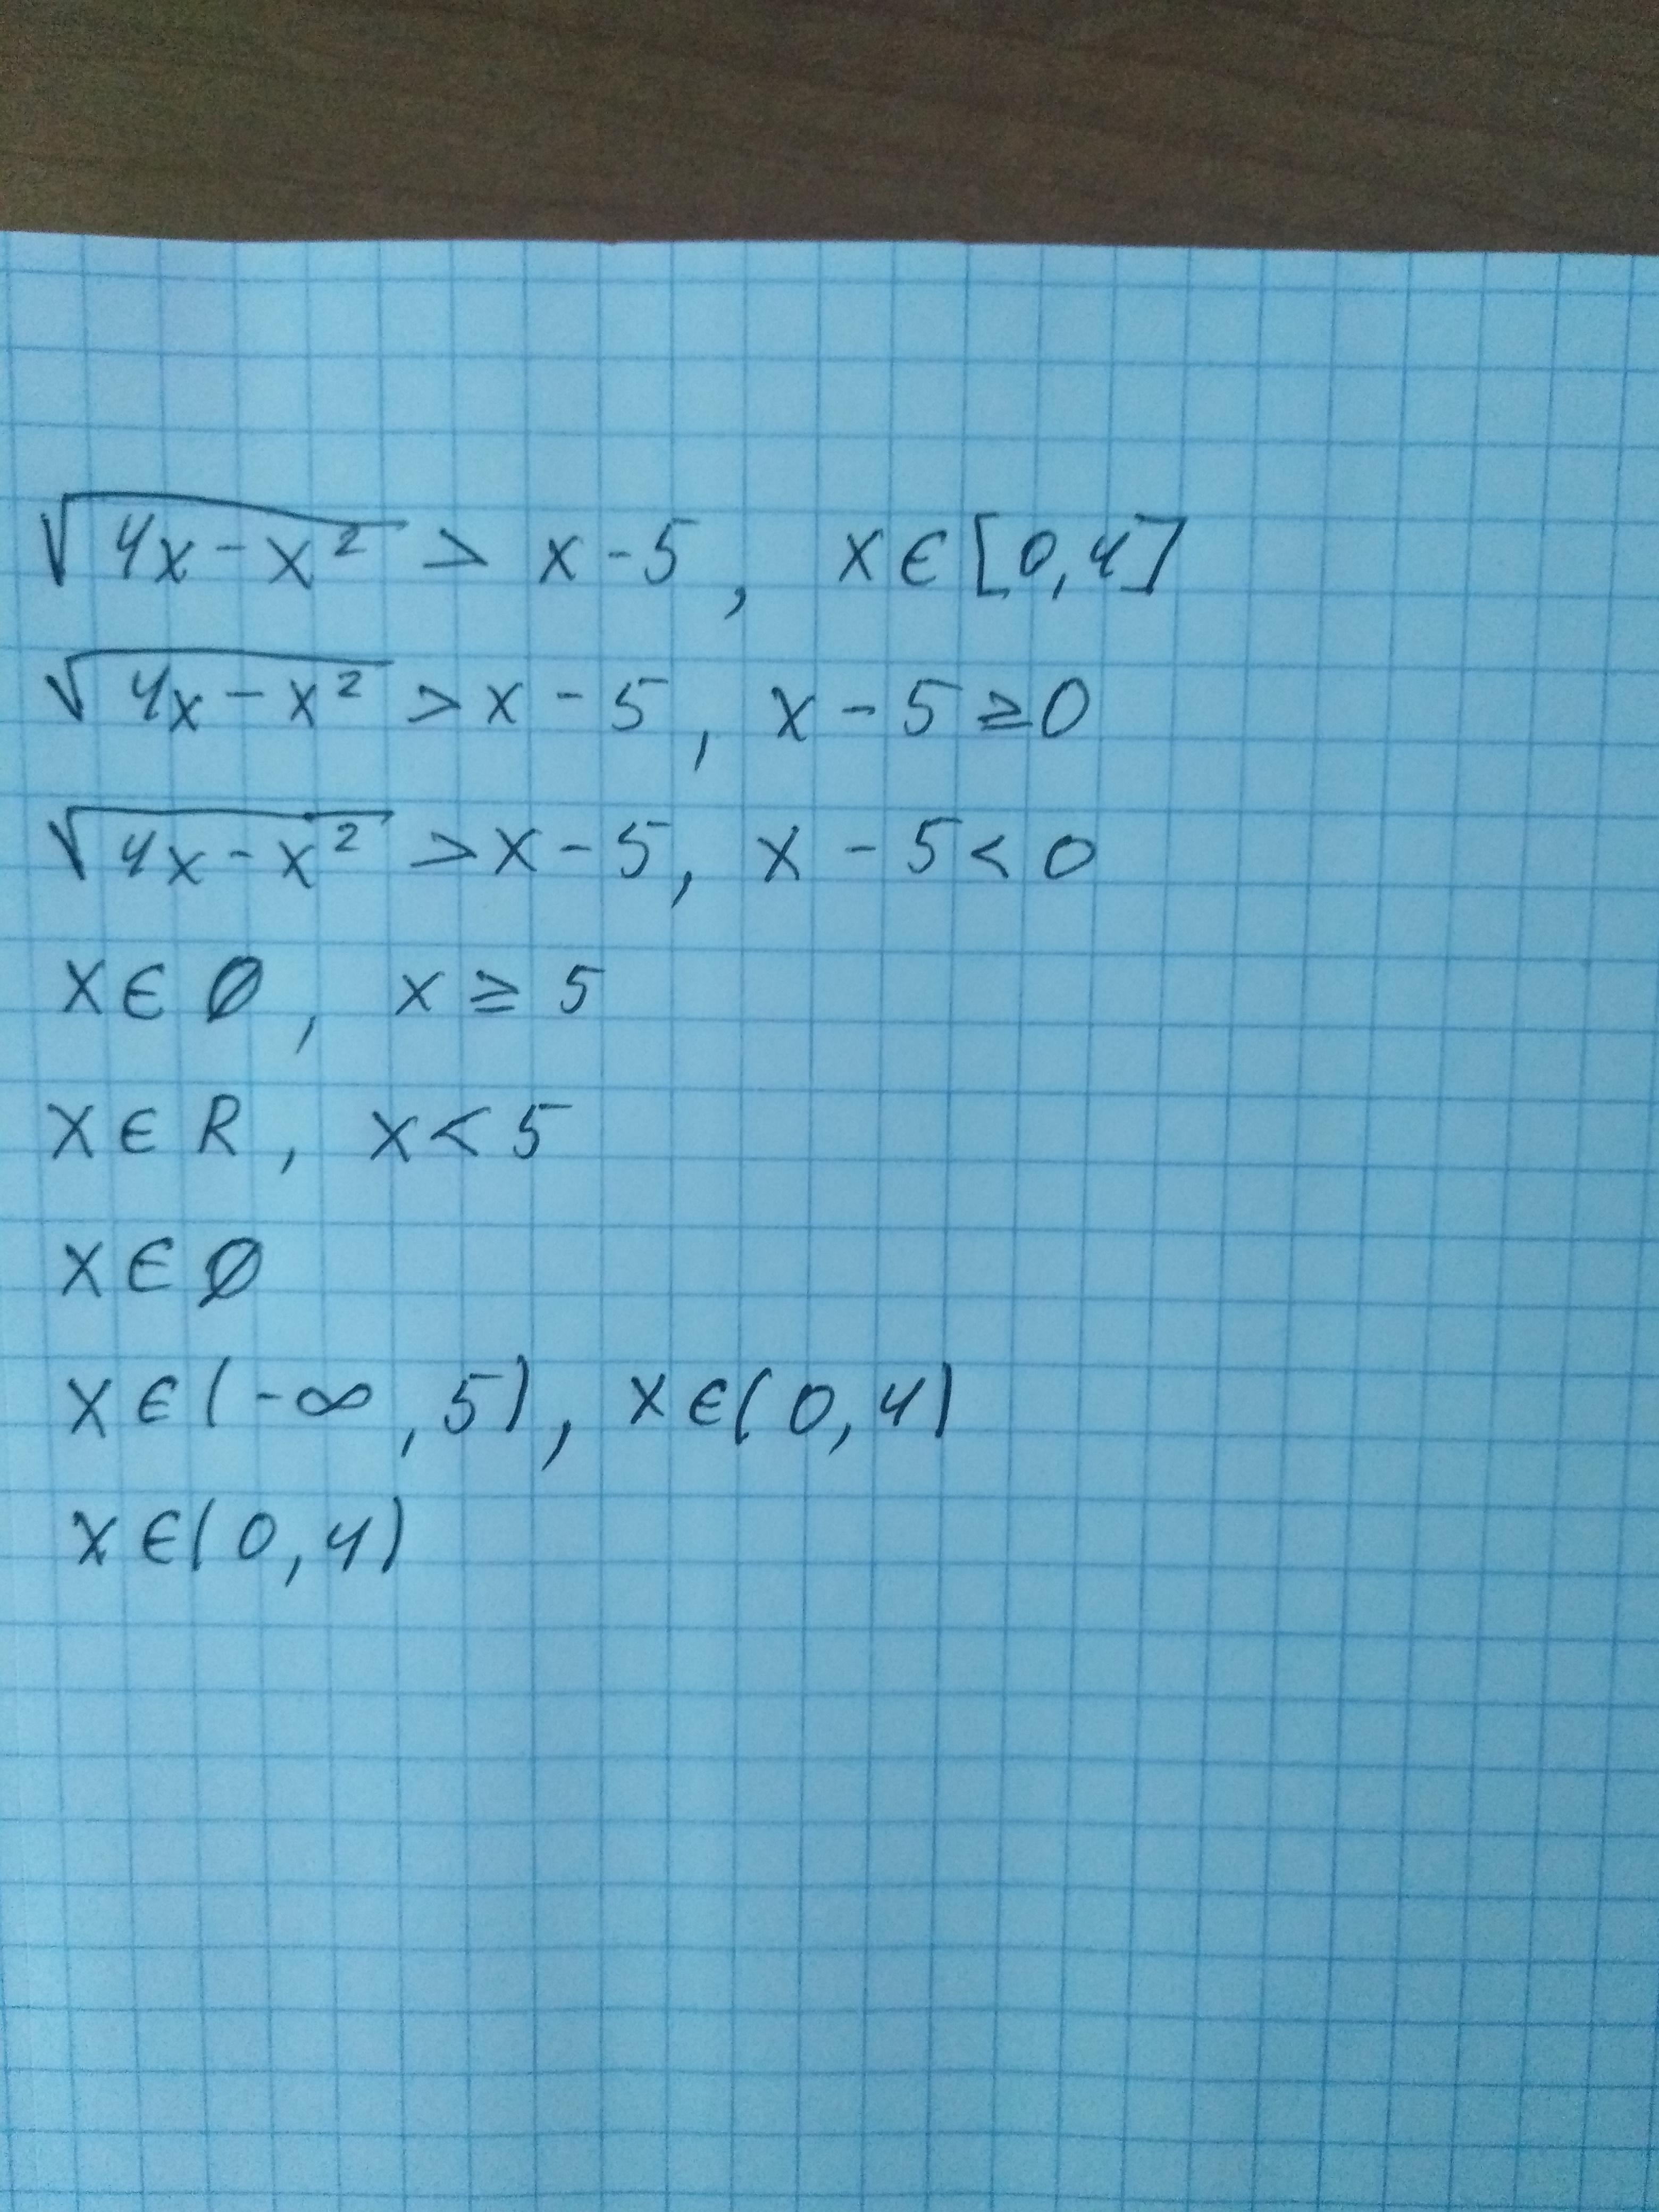 √(4x-x²) > x-5, x∈[0,4]
√(4x-x²) > x-5, x-5≥0
√(4x-x²) > x-5, x-5<0
x∈∅, x≥5
x∈R, x<5
x∈∅
x∈(-∞,5), x∈(0,4)
x∈(0,4)